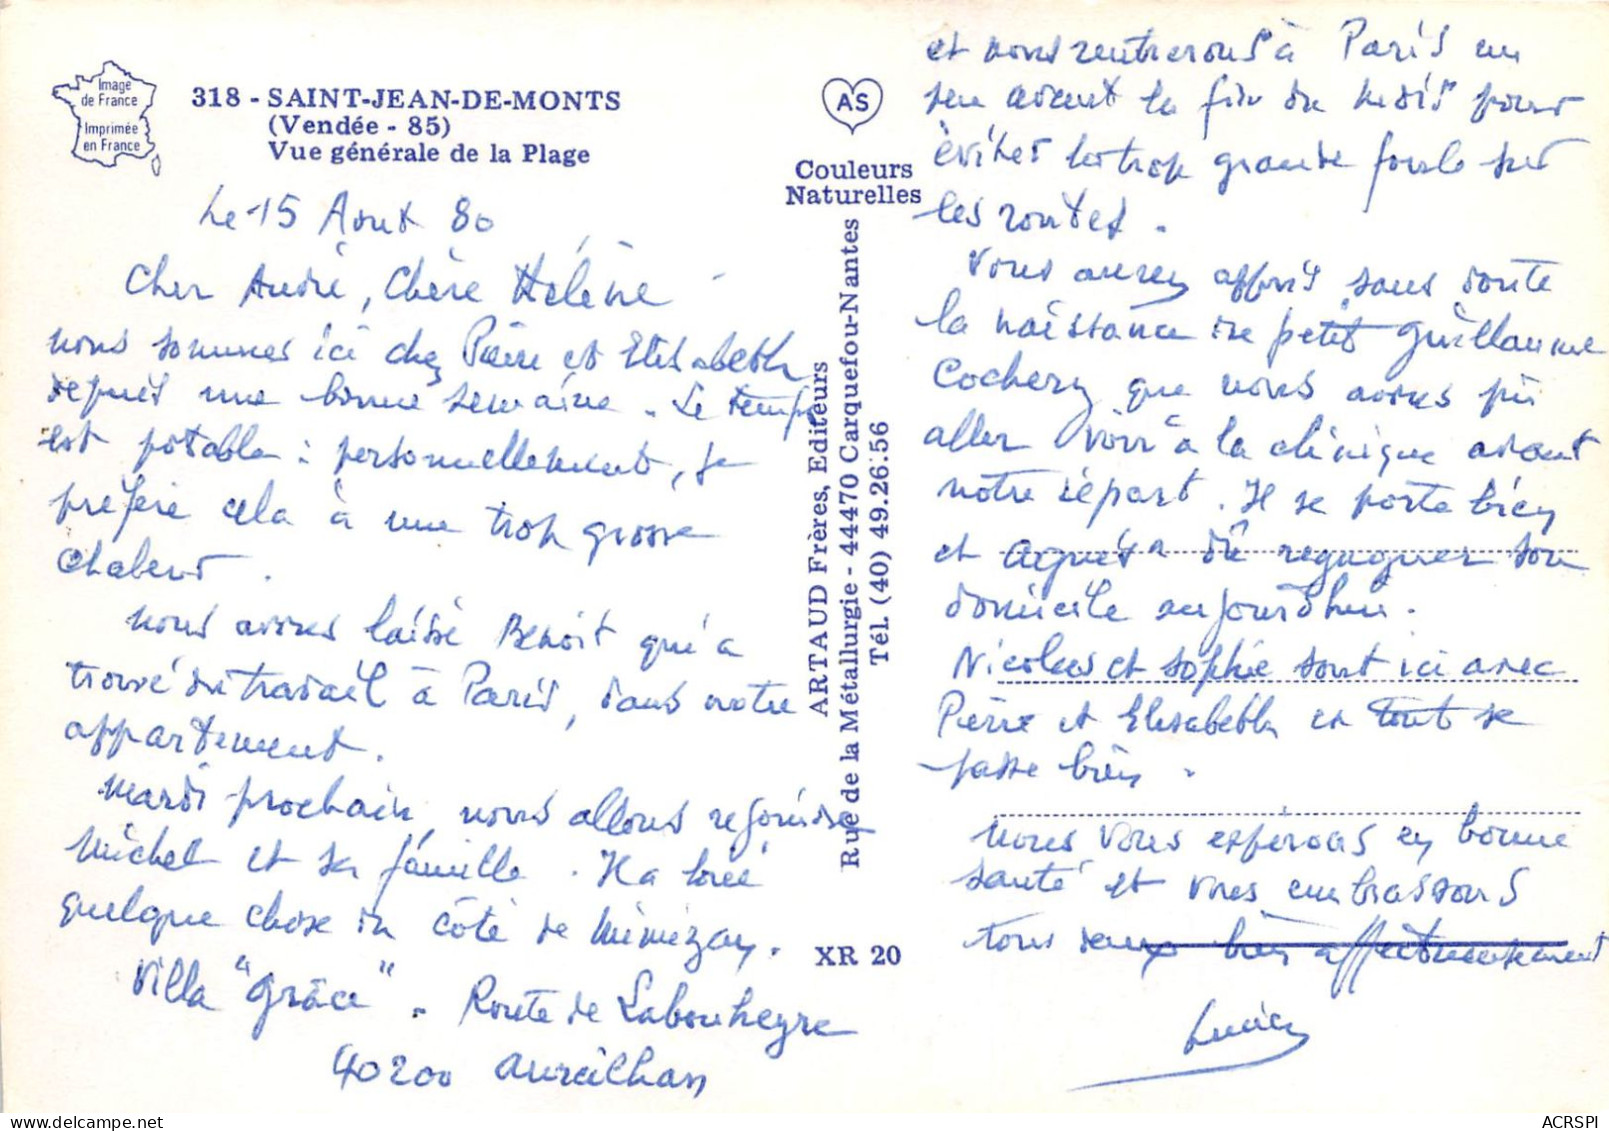 Image
de France
Imprimée
en France
318 - SAINT-JEAN-DE-MONTS
(Vendée - 85)
Vue générale de la Plage
AS
Couleurs
Naturelles
ARTAUD Frères, Editeurs
Rue de la Métallurgie - 44470 Carquefou-Nantes
Tél. (40) 49.26.56
XR 20
Le 15 Aout 80
Cher André, Chère Hélène
nous sommes ici chez Pierre et Elisabeth
depuis une bonne semaine. Le temps
est potable : personnellement, je
préfère cela à une trop grosse
chaleur.
nous avons laissé Benoit qui a
trouvé du travail à Paris, dans notre
appartement.
Mardi prochain nous allons rejoindre
Michel et sa famille. Il a loué
quelque chose du côté de Mimizan.
Villa "Grâce". Route de Labouheyre
40200 Aureilhan
et nous rentrerons à Paris un
peu avant la fin du mois pour
éviter la trop grande foule sur
les routes.
Vous aurez appris sans doute
la naissance de petit Guillaume
Cochery que nous avons pu
aller voir à la clinique avant
notre départ. Il se porte bien
et Agnès a dû regagner son
domicile aujourd'hui.
Nicolas et Sophie sont ici avec
Pierre et Elisabeth et tout se
passe bien.
nous vous espérons en bonne
santé et vous embrassons
tous deux bien affectueusement
Lucien
ACRSPI